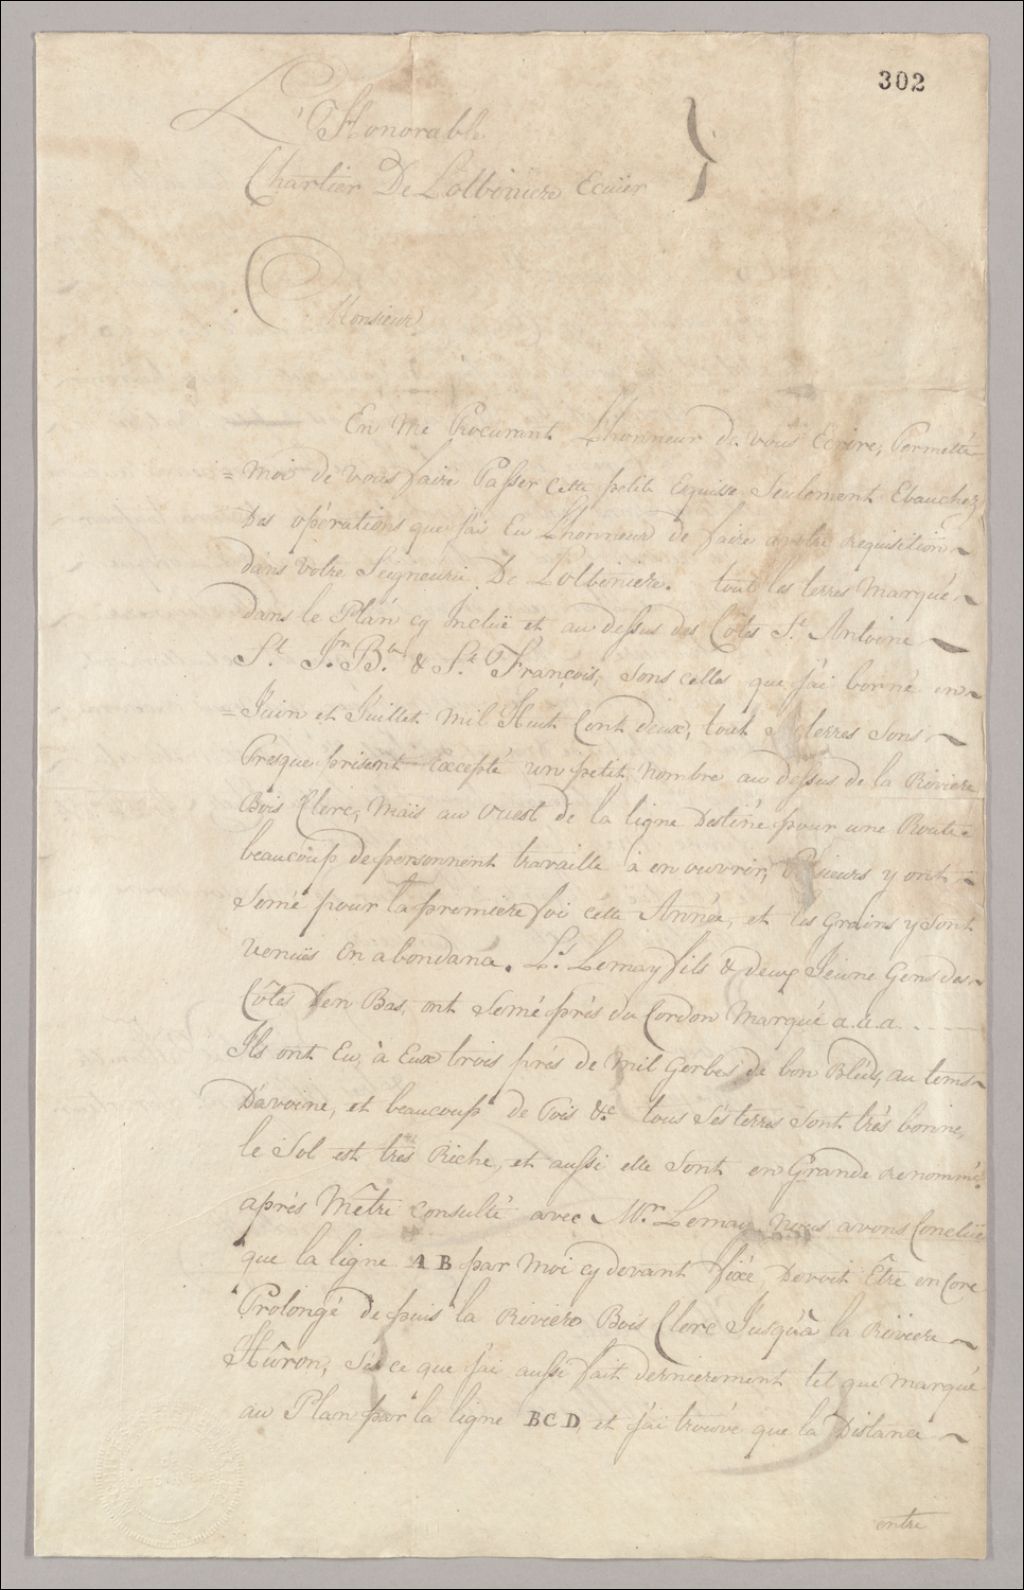 302
L'Honorable
Chartier De Lotbiniere Ecuïer
Monsieur
En me Procurant L'honneur de vous Ecrire, Permetté
= moi de vous faire Passer Cette petite Equisse Seulement Ebauchez
Des opérations que j'ai Eu L'honneur de faire a votre requisition ~
dans Votre Seigneurie De Lotbiniere. tout les terres Marqué ~
dans le Plan cy Inclüe et au dessus des Côtes St. Antoine ~
St. Jn. Bte. & St. François, Sons celles que j'ai borné en ~
= Juin et Juillet Mil Huit Cent deux, tout terres Sons ~
Presque prisent Excepté un petit Nombre au dessus de la Riviere
Bois Clere, Mais au Ouest de la ligne Destiné pour une Route =
beaucoup de personnent travaille à en ouvrir, Plusieurs y ont ~
Semé pour la premiere foi cette Année, et les Grains y Sont
venuës En abondance. Ls. Lemay fils & deux Jeune Gens des ~
Côtes D'en Bas, ont Semé près du Cordon Marqué a.a.a.
Ils ont Eu, à Eux trois près de mil Gerbes de bon Bléds, au tems ~
D'avoine, et beaucoup de Pois &c. tous Sés terres Sont très bonne,
le Sol est très Riche, et aussi elle Sont en Grande renommé.
après M'être Consulté avec Mr. Lemay nous avons Conclüe
que la ligne A B par moi cy devant fixé, Devoit Être enCore
Prolongé depuis la Riviere Bois Clere Jusqu'à la Riviere ~
Hûron, Sés ce que j'ai aussi fait dernierement tel que Marqué
au Plan par la ligne BCD, et j'ai trouvé que la Distance ~
entre